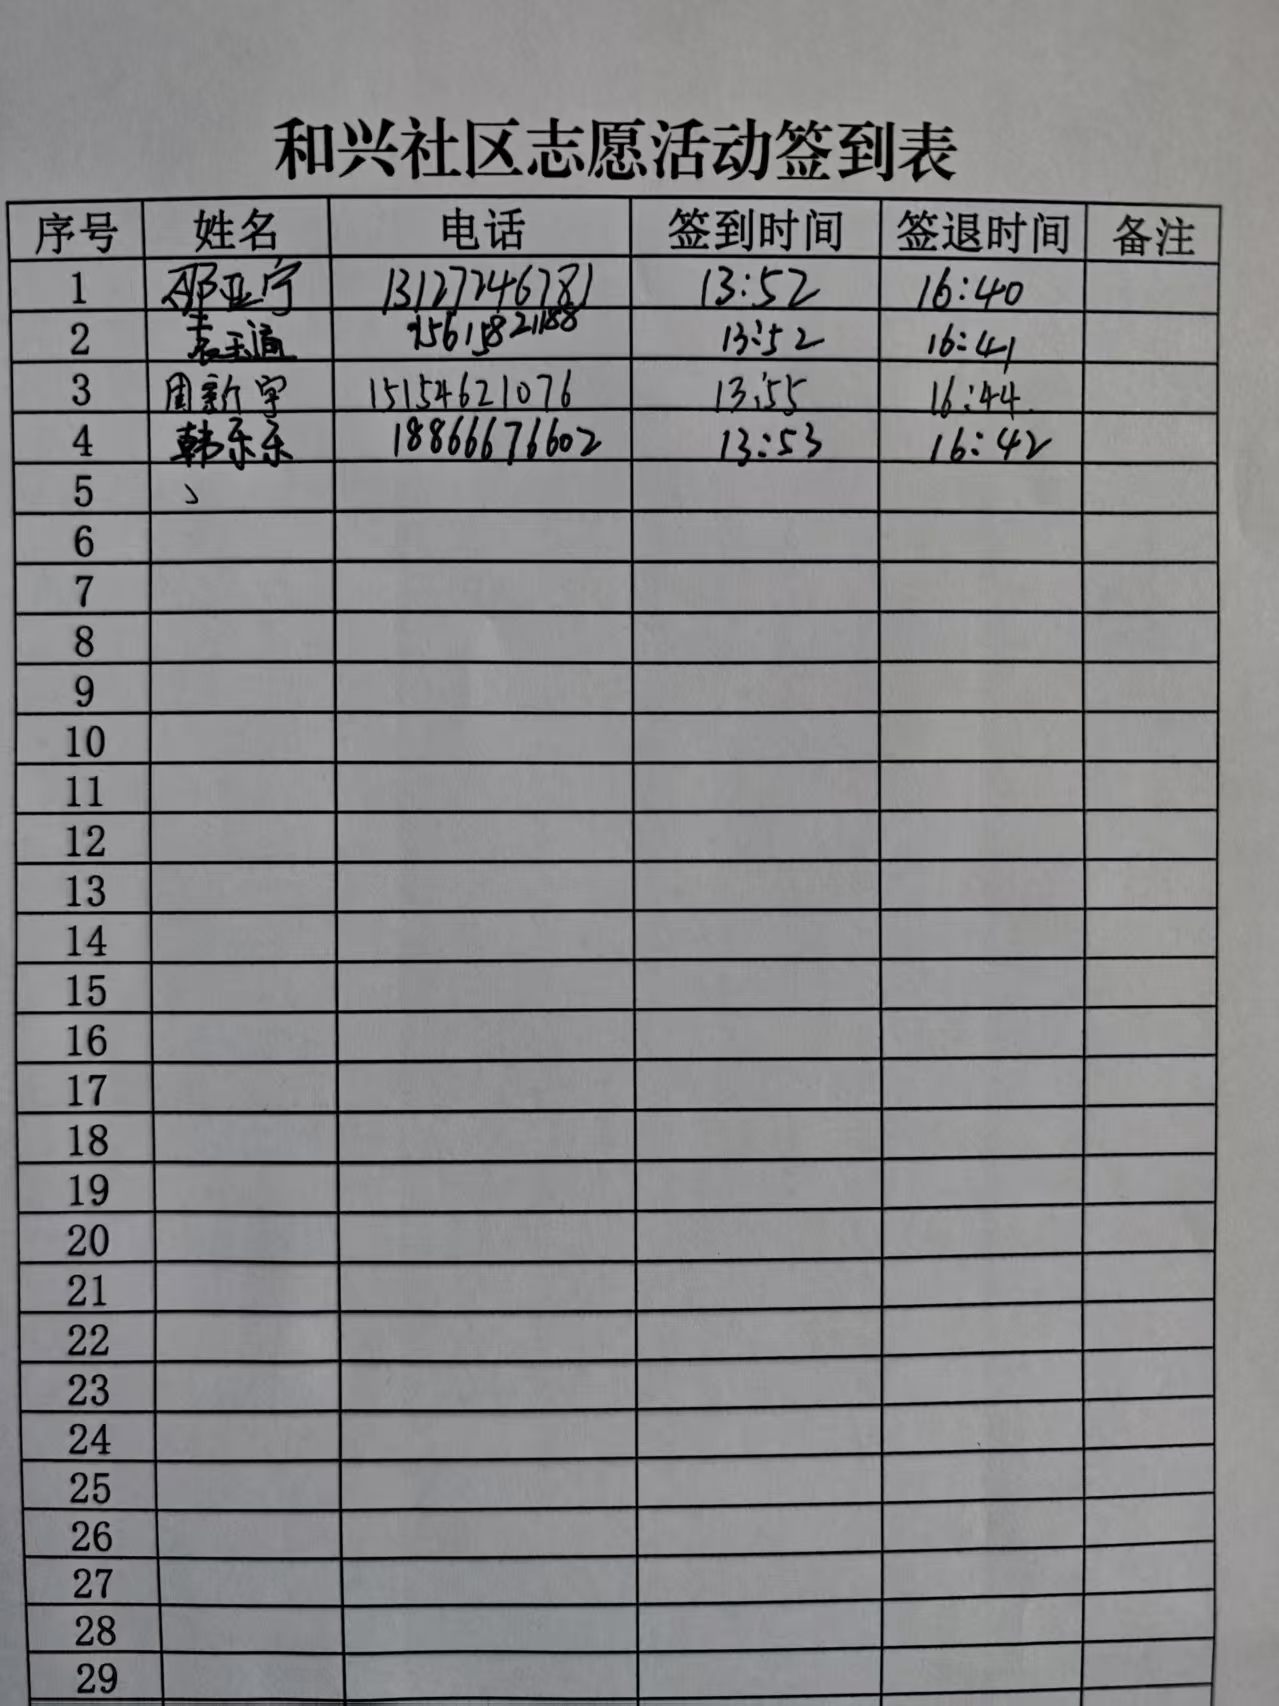 和兴社区志愿活动签到表
序号 姓名 电话 签到时间 签退时间 备注
1 邵亚宁 13127246781 13:52 16:40
2 袁玉涵 15615821188 13:52 16:41
3 周新宇 15154621076 13:55 16:44
4 韩乐乐 18866676602 13:53 16:42
5
6
7
8
9
10
11
12
13
14
15
16
17
18
19
20
21
22
23
24
25
26
27
28
29